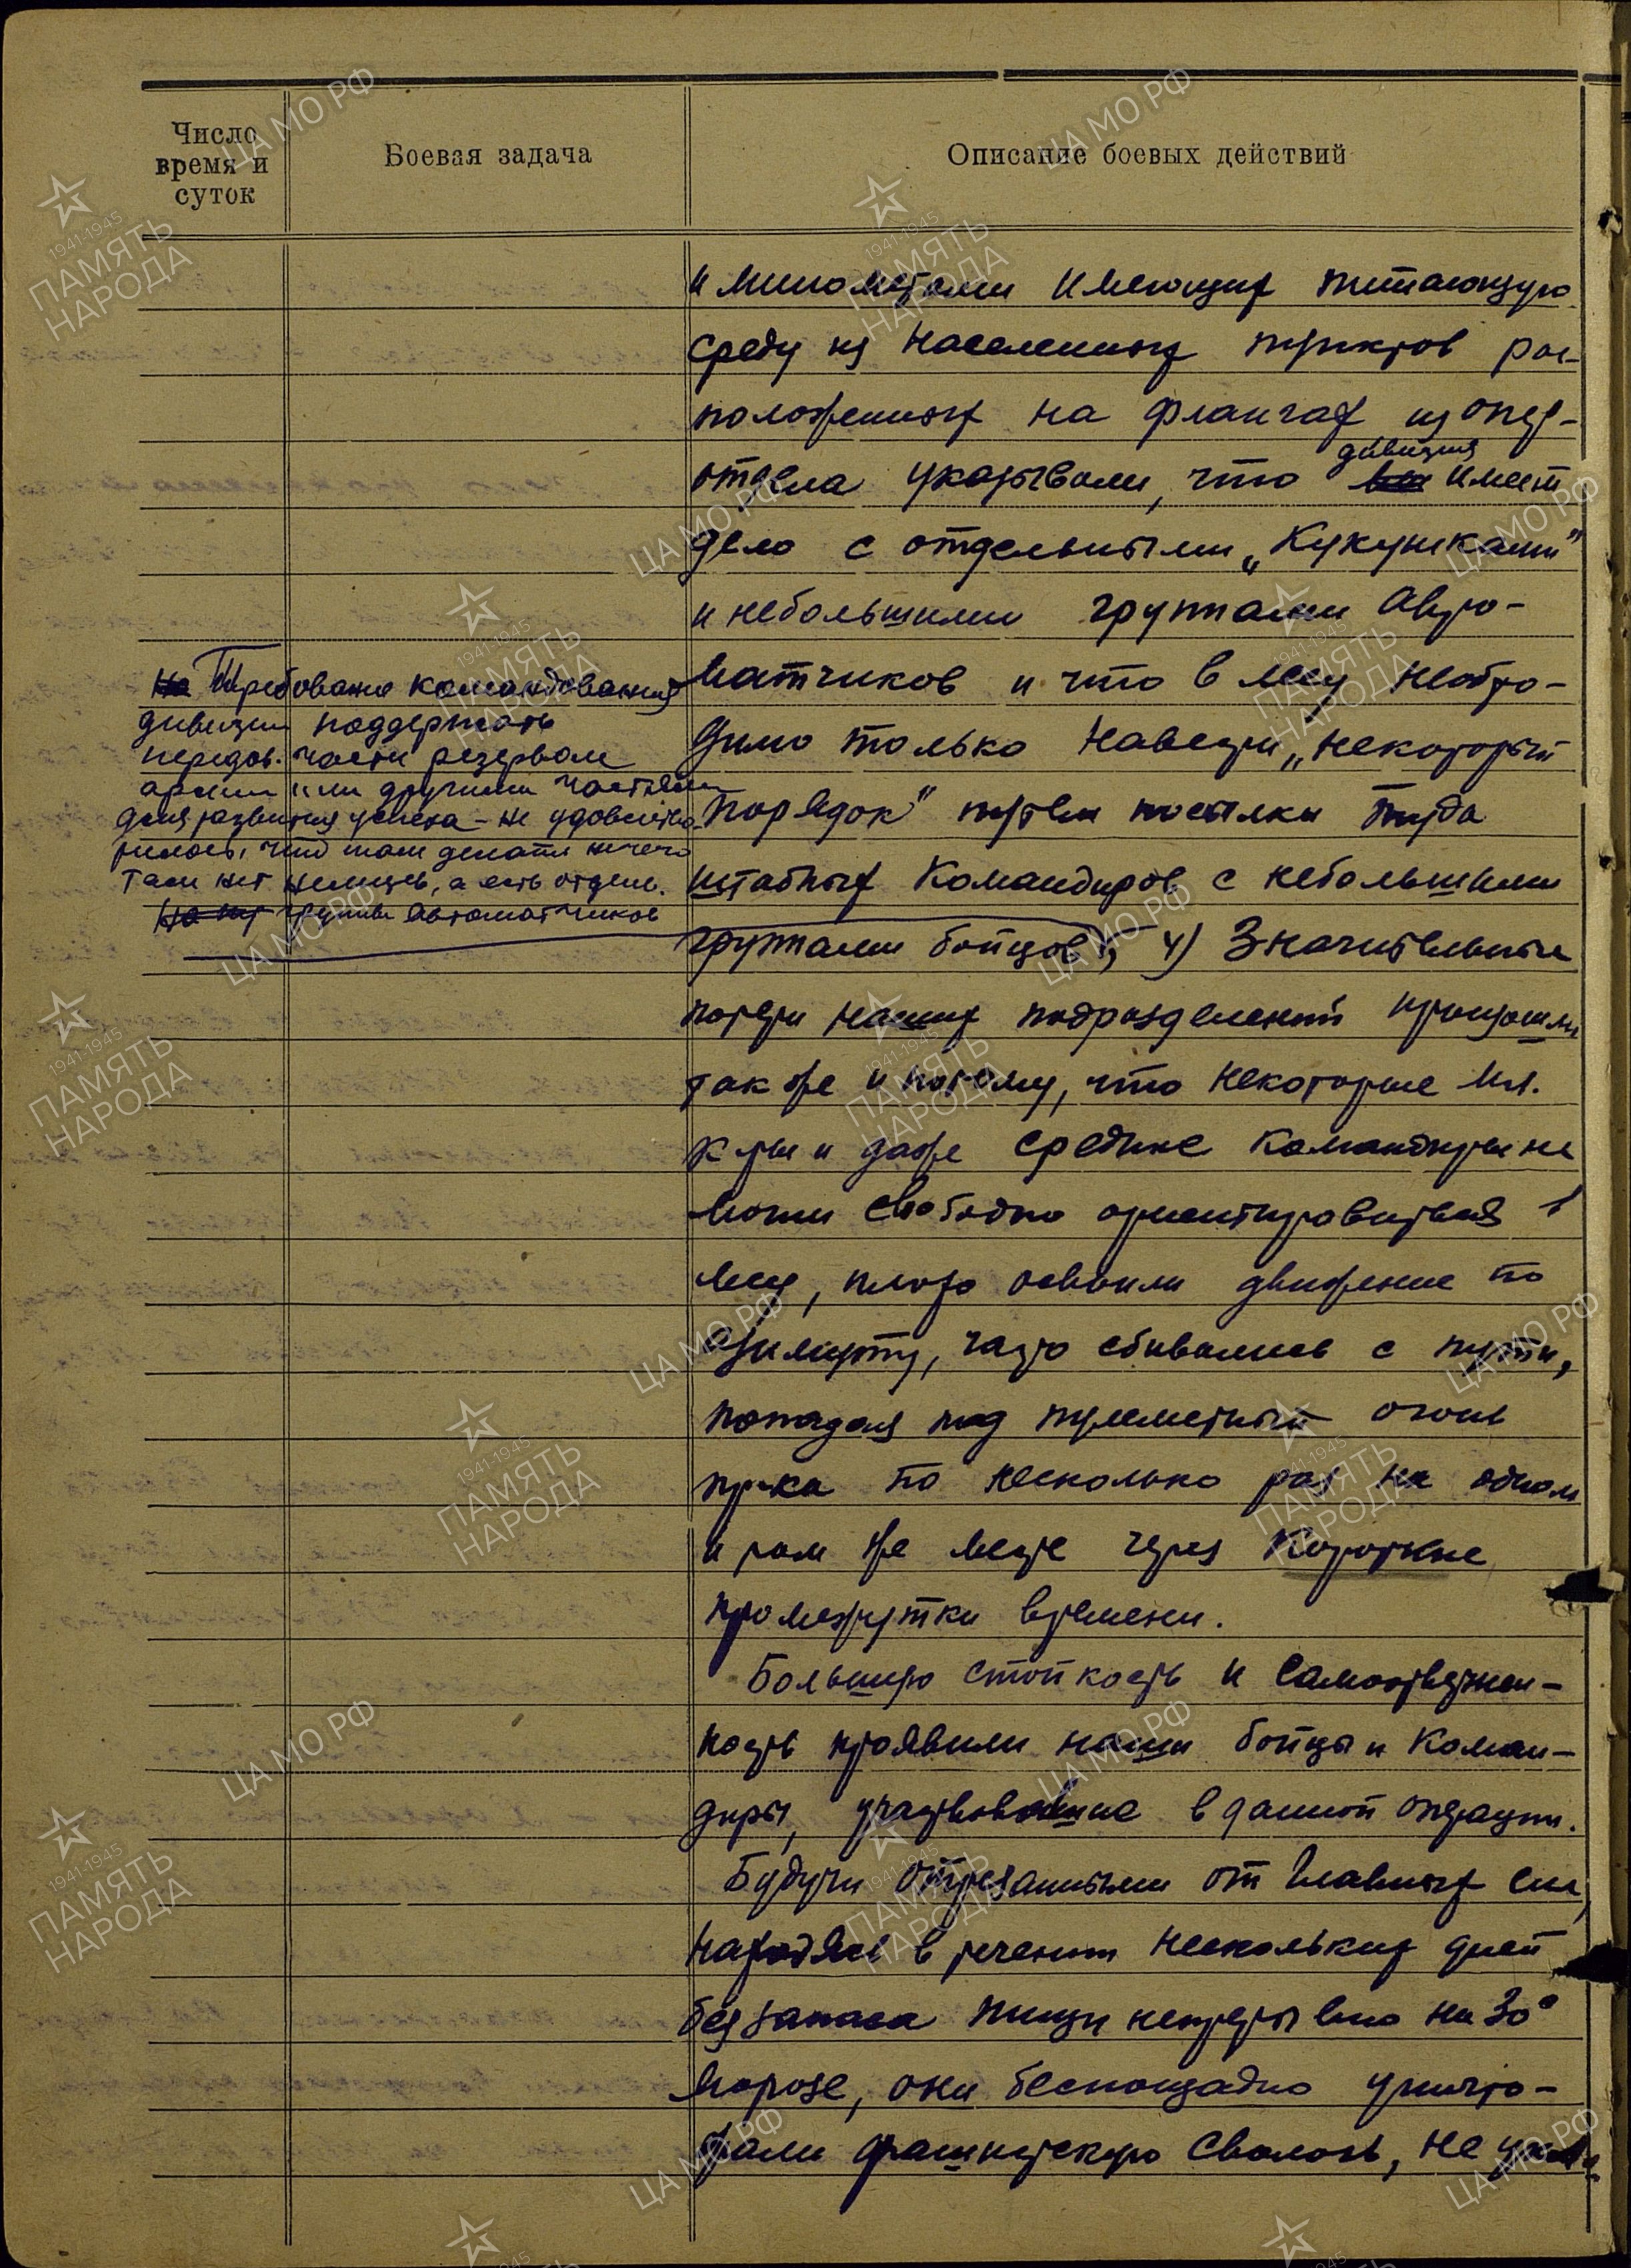 Число
время и
суток
Боевая задача
Описание боевых действий
и минометами имеющих питающую
среду из населенных пунктов рас-
положенных на флангах из опер-
отдела указывали, что дивизия имеет
дело с отдельными „Кукушками"
и небольшими группами авто-
матчиков и что в лесу необхо-
димо только навести „некоторый
порядок" путем посылки туда
штабных командиров с небольшими
группами бойцов), 4) Значительные
потери наших подразделений произошли
так же и потому, что некоторые мл.
к-ры и даже средние командиры не
могли свободно ориентироваться в
лесу, плохо освоили движение по
азимуту, часто сбивались с пути,
попадая под пулеметный огонь
пр-ка по несколько раз на одном
и том же месте через короткие
промежутки времени.
Большую стойкость и самоотвержен-
ность проявили наши бойцы и коман-
диры, участвовавшие в данной операции.
Будучи отрезанными от главных сил,
находясь в течении нескольких дней
без запаса пищи непрерывно на 30°
морозе, они беспощадно уничто-
жали фашистскую сволочь, не
На Требование командования
дивизии поддержать
передов. части резервом
армии или другими частями
для развития успеха - не удовлетво-
рилось, что там делать нечего
там нет немцев, а есть отдельн.
группы автоматчиков
ЦА МО РФ
1941-1945
ПАМЯТЬ
НАРОДА